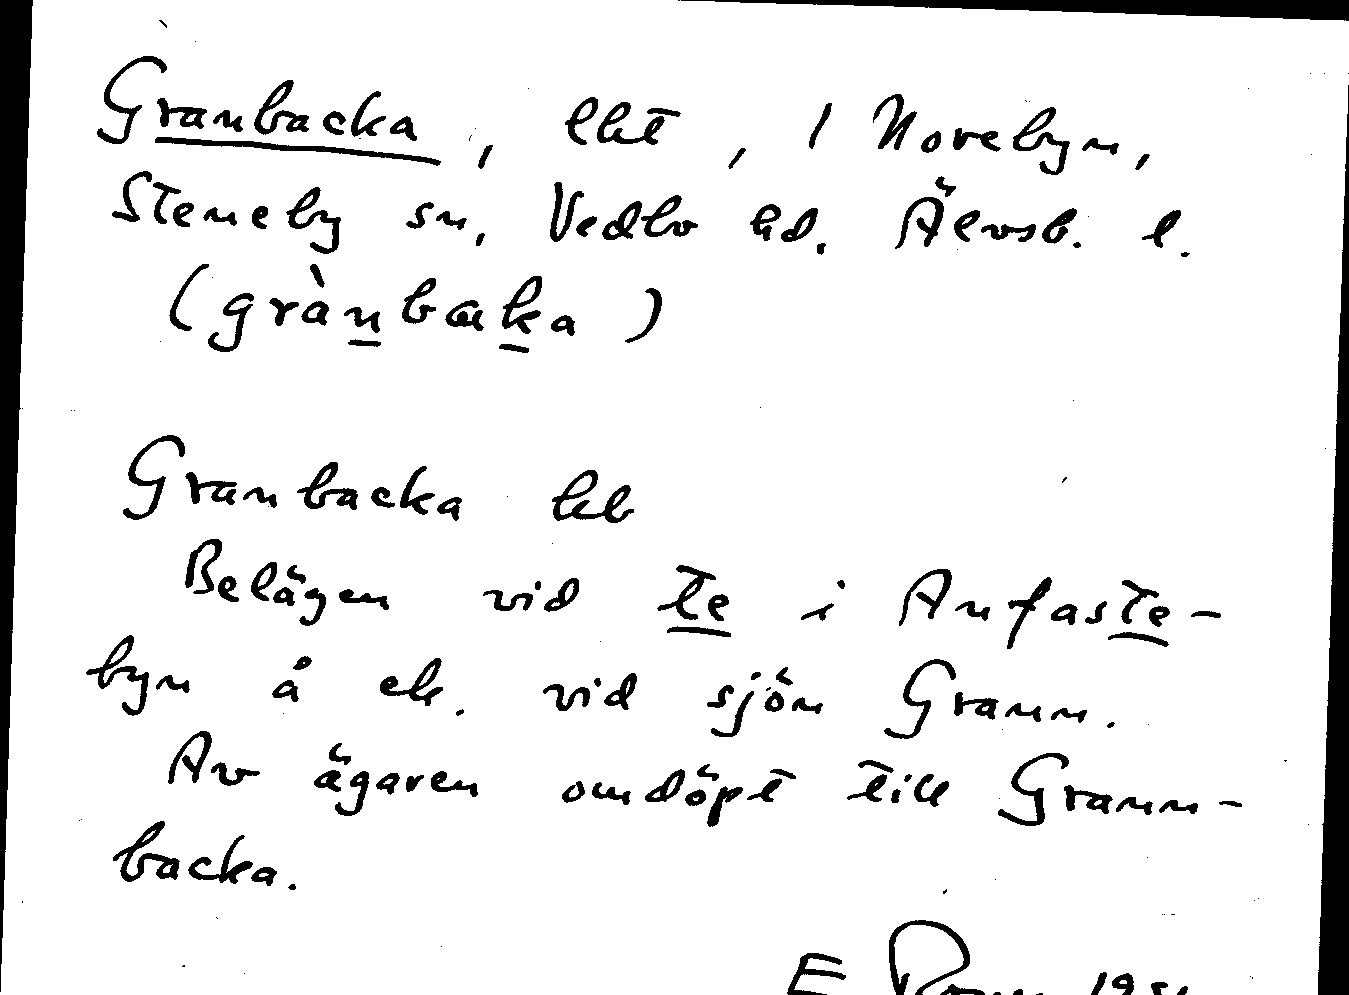 Granbacka, lht, i Norebyn,
Steneby sn, Vedbo hd. Älvsb. l.
(grànbaka)
Granbacka
Belägen vid te i Anfaste-
byn å ek. vid sjön Grann.
Av ägaren omdöpt till Grann-
backa.
E